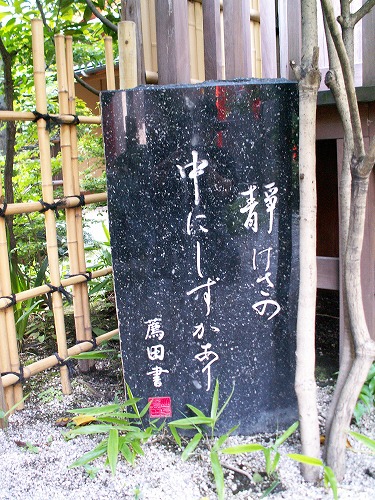 静けさの
中にしすかあり
薦田書